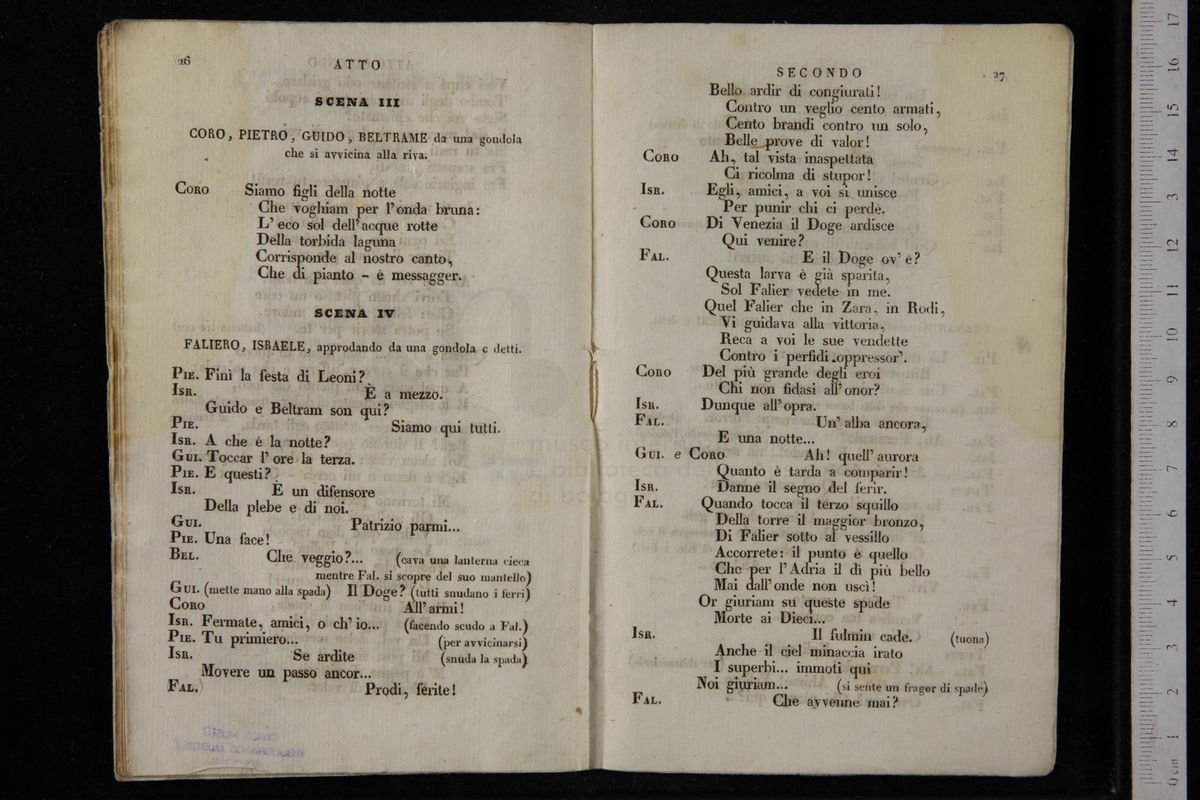 26
ATTO
SCENA III
CORO, PIETRO, GUIDO, BELTRAME da una gondola
che si avvicina alla riva.
CORO Siamo figli della notte
Che voghiam per l'onda bruna:
L'eco sol dell'acque rotte
Della torbida laguna
Corrisponde al nostro canto,
Che di pianto - è messagger.
SCENA IV
FALIERO, ISRAELE, approdando da una gondola e detti.
PIE. Finì la festa di Leoni?
ISR. È a mezzo.
Guido e Beltram son qui?
PIE. Siamo qui tutti.
ISR. A che è la notte?
GUI. Toccar l'ore la terza.
PIE. E questi?
ISR. E un difensore
Della plebe e di noi.
GUI. Patrizio parmi...
PIE. Una face!
BEL. Che veggio?... (cava una lanterna cieca
mentre Fal. si scopre del suo mantello)
GUI. (mette mano alla spada) Il Doge? (tutti snudano i ferri)
CORO All'armi!
ISR. Fermate, amici, o ch'io... (facendo scudo a Fal.)
PIE. Tu primiero... (per avvicinarsi)
ISR. Se ardite (snuda la spada)
Movere un passo ancor...
FAL. Prodi, ferite!
SECONDO
27
Bello ardir di congiurati!
Contro un veglio cento armati,
Cento brandi contro un solo,
Belle prove di valor!
CORO Ah, tal vista inaspettata
Ci ricolma di stupor!
ISR. Egli, amici, a voi si unisce
Per punir chi ci perdè.
CORO Di Venezia il Doge ardisce
Qui venire?
FAL. E il Doge ov'è?
Questa larva è già sparita,
Sol Falier vedete in me.
Quel Falier che in Zara, in Rodi,
Vi guidava alla vittoria,
Reca a voi le sue vendette
Contro i perfidi oppressor'.
CORO Del più grande degli eroi
Chi non fidasi all'onor?
ISR. Dunque all'opra.
FAL. Un'alba ancora,
E una notte...
GUI. e CORO Ah! quell'aurora
Quanto è tarda a comparir!
ISR. Danne il segno del ferir.
FAL. Quando tocca il terzo squillo
Della torre il maggior bronzo,
Di Falier sotto al vessillo
Accorrete: il punto è quello
Che per l'Adria il dì più bello
Mai dall'onde non uscì!
Or giuriam su queste spade
Morte ai Dieci...
ISR. Il fulmin cade. (tuona)
Anche il ciel minaccia irato
I superbi... immoti qui
Noi giuriam... (si sente un fragor di spade)
FAL. Che avvenne mai?